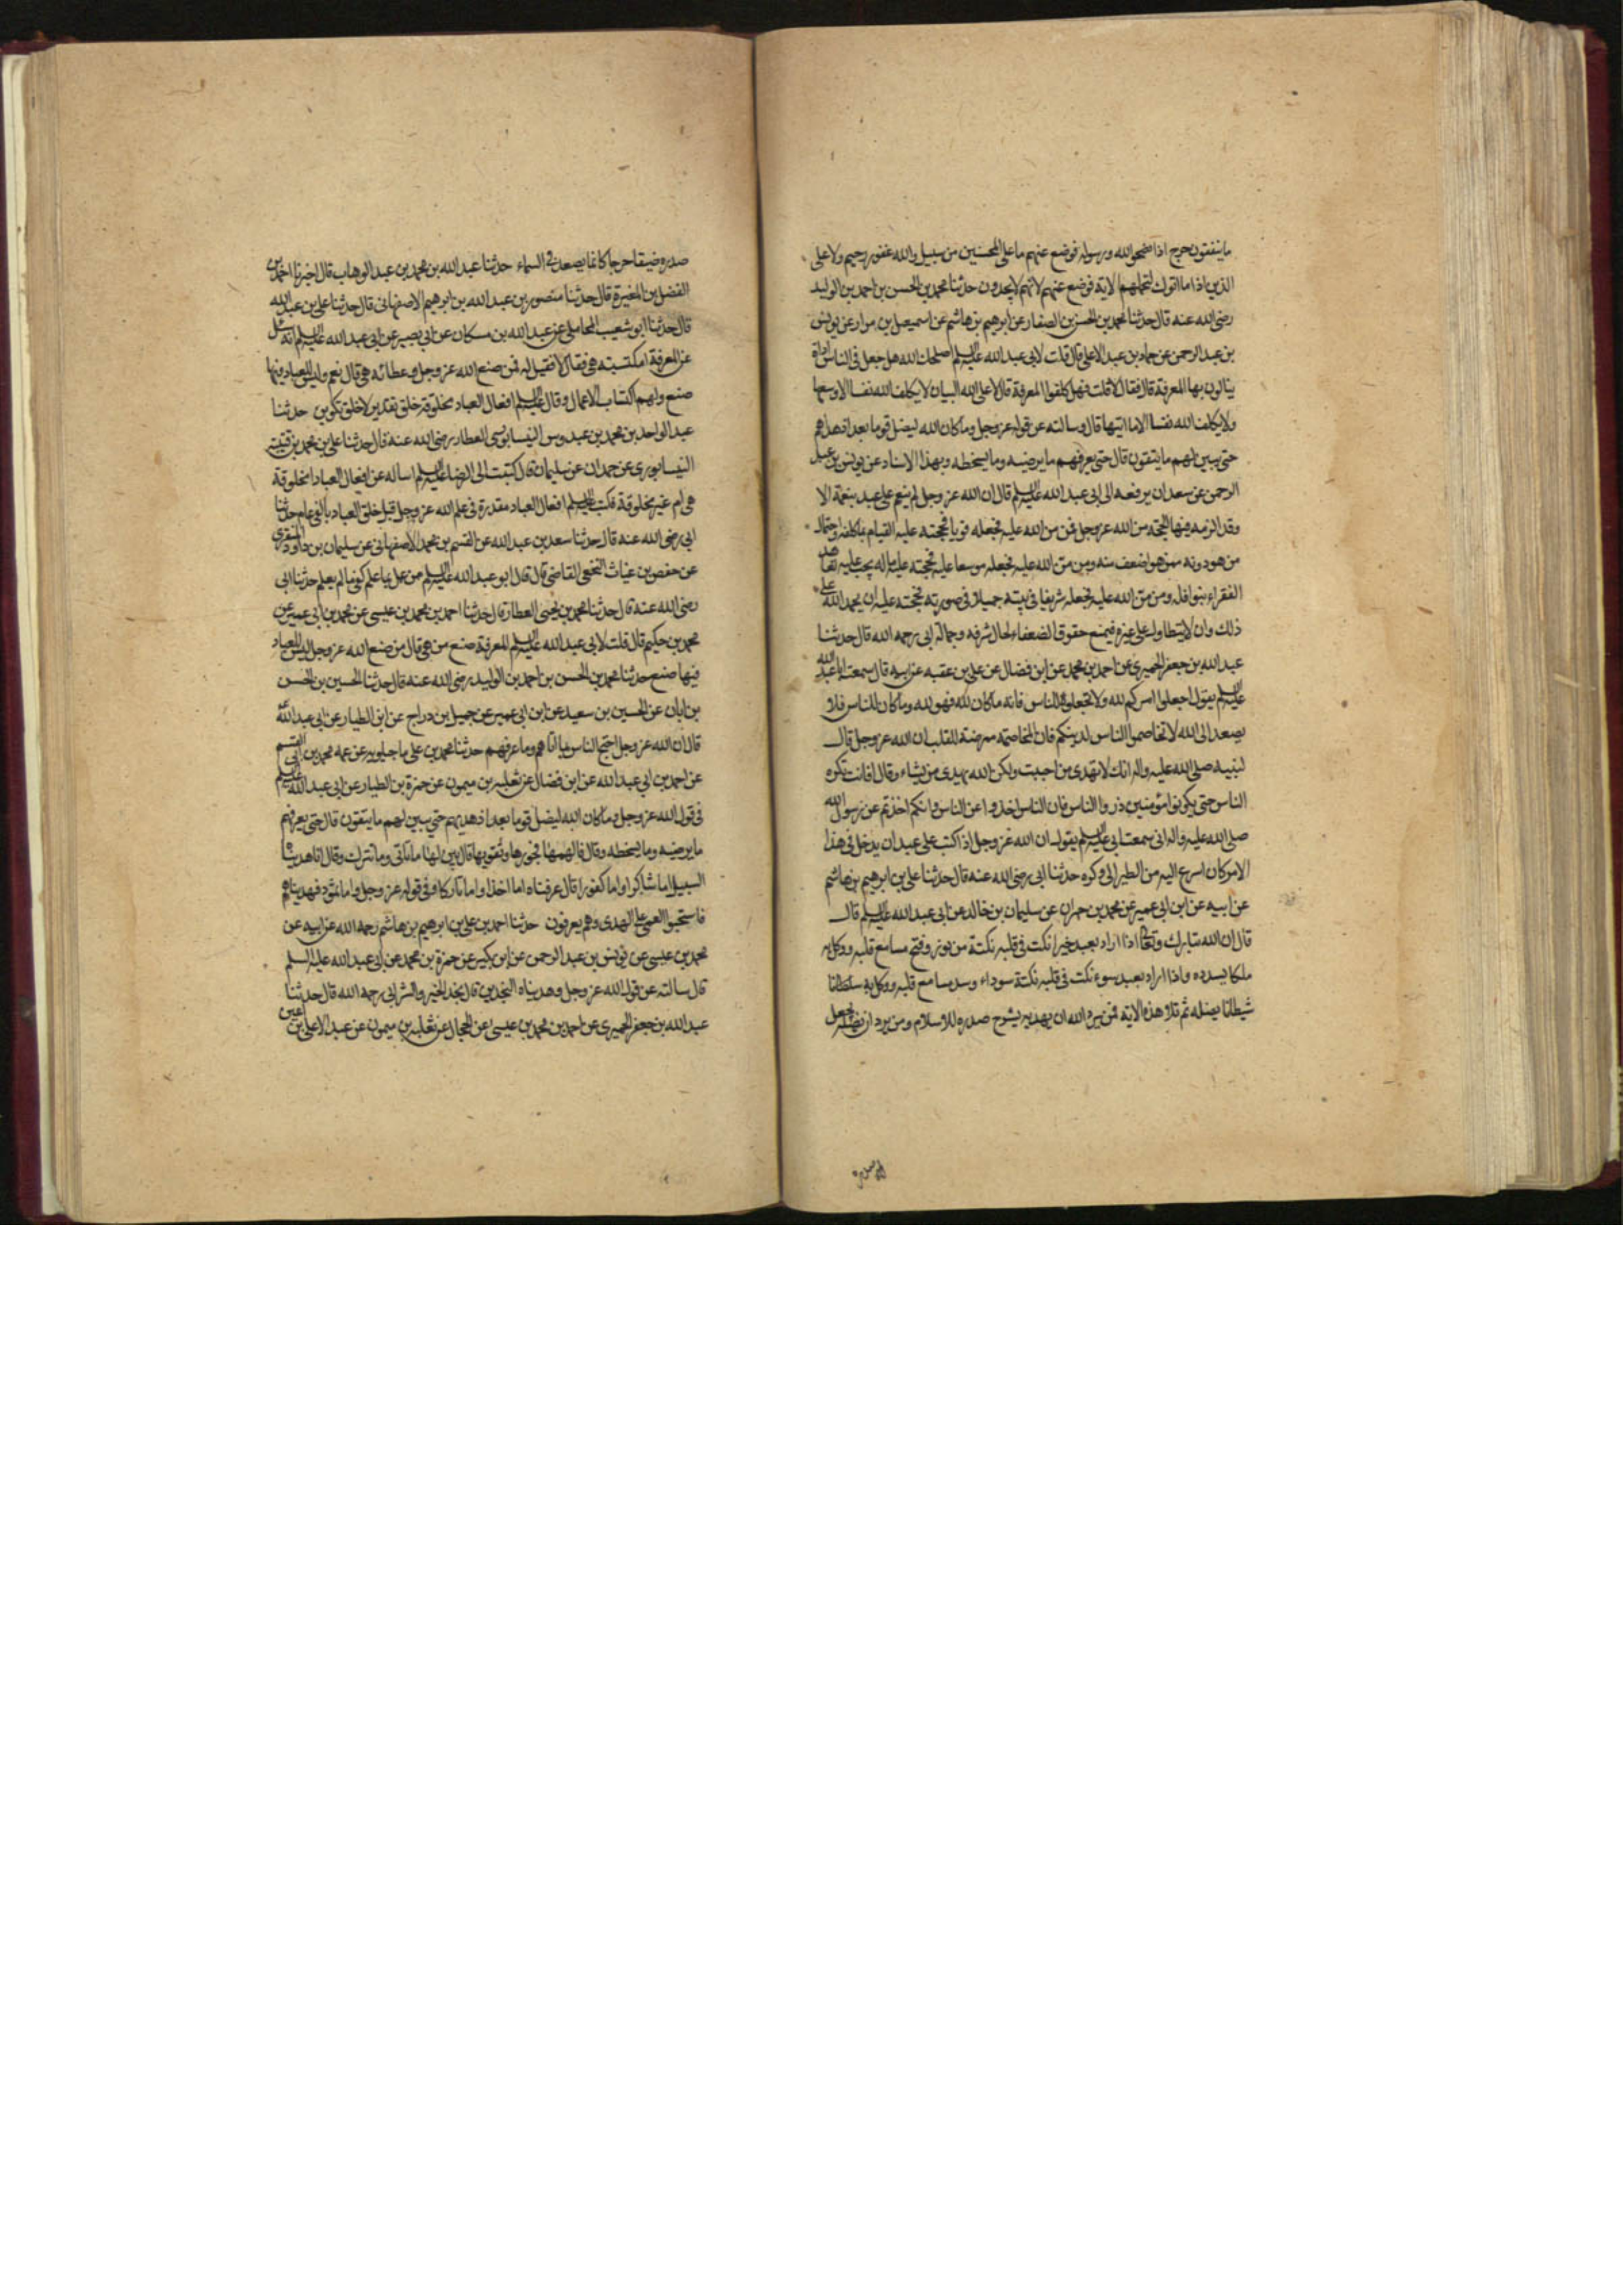 ما ينفقون حرج اذا نصحوا لله ورسوله فوضع عنهم ما على المحسنين من سبيل والله غفور رحيم ولا على
الذين اذا ما اتوك لتحملهم الاية فوضع عنهم لانهم لا يجدون حدثنا محمد بن الحسن بن احمد بن الوليد
رضى الله عنه قال حدثنا محمد بن الحسن الصفار عن ابرهيم بن هاشم عن اسمعيل بن مرار عن يونس
بن عبد الرحمن عن حماد بن عبد الاعلى قال قلت لابى عبد الله عليه السلم اصلحك الله هل جعل فى الناس اداة
ينالون بها المعرفة قال فقال لا قلت فهل كلفوا المعرفة قال لا على الله البيان لا يكلف الله نفسا الا وسعها
ولا يكلف الله نفسا الا ما اتيها قال وسالته عن قوله عز وجل وما كان الله ليضل قوما بعد اذ هداهم
حتى يبين لهم ما يتقون قال حتى يعرفهم ما يرضيه وما يسخطه وبهذا الاسناد عن يونس بن عبد
الرحمن عن سعدان يرفعه الى ابى عبد الله عليه السلم قال ان الله عز وجل لم ينعم على عبد بنعمة الا
وقد الزمه فيها الحجة من الله عز وجل فمن من الله عليه فجعله قويا فحجته عليه القيام بما كلفه واحتمال
من هو دونه ممن هو اضعف منه ومن من الله عليه فجعله موسعا عليه فحجته عليه ماله يجب عليه تعاهد
الفقراء بنوافله ومن من الله عليه فجعله شريفا فى بيته جميلا فى صورته فحجته عليه ان يحمد الله على
ذلك وان لا يتطاول على غيره فيمنع حقوق الضعفاء لحال شرفه وجماله ابى رحمه الله قال حدثنا
عبد الله بن جعفر الحميرى عن احمد بن محمد عن ابن فضال عن على بن عقبه عن ابيه قال سمعت ابا عبد الله
عليه السلم يقول اجعلوا امركم لله ولا تجعلوه للناس فانه ما كان لله فهو لله وما كان للناس فلا
يصعد الى الله لا تخاصموا الناس لدينكم فان المخاصمة ممرضة للقلب ان الله عز وجل قال
لنبيه صلى الله عليه واله انك لا تهدى من احببت ولكن الله يهدى من يشاء وقال افانت تكره
الناس حتى يكونوا مؤمنين ذروا الناس فان الناس اخذوا عن الناس وانكم اخذتم عن رسول الله
صلى الله عليه واله انى سمعت ابى عليه السلم يقول ان الله عز وجل اذا كتب على عبد ان يدخل فى هذا
الامر كان اسرع اليه من الطير الى وكره حدثنا ابى رضى الله عنه قال حدثنا على بن ابرهيم بن هاشم
عن ابيه عن ابن ابى عمير عن محمد بن حمران عن سليمان بن خالد عن ابى عبد الله عليه السلم قال
قال ان الله تبارك وتعالى اذا اراد بعبد خيرا نكت فى قلبه نكتة من نور وفتح مسامع قلبه ووكل به
ملكا يسدده واذا اراد بعبد سوء نكت فى قلبه نكتة سوداء وسد مسامع قلبه ووكل به
شيطانا يضله ثم تلا هذه الاية فمن يرد الله ان يهديه يشرح صدره للاسلام ومن يرد ان يضله يجعل
صدره
صدره ضيقا حرجا كانما يصعد فى السماء حدثنا عبد الله بن محمد بن عبد الوهاب قال اخبرنا احمد بن
الفضل بن المغيرة قال حدثنا منصور بن عبد الله بن ابرهيم الاصفهانى قال حدثنا على بن عبد الله
قال حدثنا ابو شعيب المحاملى عن عبد الله بن مسكان عن ابى بصير عن ابى عبد الله عليه السلم انه سئل
عن المعرفة امكتسبة هى فقال لا فقيل له فمن صنع الله عز وجل وعطائه هى قال نعم وليس للعباد فيها
صنع ولهم اكتساب الاعمال وقال عليه السلم افعال العباد مخلوقة خلق تقدير لا خلق تكوين حدثنا
عبد الواحد بن محمد بن عبدوس النيسابورى العطار رضى الله عنه قال حدثنا على بن محمد بن قتيبة
النيسابورى عن حمدان بن سليمان قال كتبت الى الرضا عليه السلم اساله عن افعال العباد امخلوقة
هى ام غير مخلوقة فكتب عليه السلم افعال العباد مقدرة فى علم الله عز وجل قبل خلق العباد بالفى عام حدثنا
ابى رضى الله عنه قال حدثنا سعد بن عبد الله عن القسم بن محمد الاصفهانى عن سليمان بن داود المنقرى
عن حفص بن غياث النخعى القاضى قال قال ابو عبد الله عليه السلم من عمل بما علم كفى ما لم يعلم حدثنا ابى
رضى الله عنه قال حدثنا محمد بن يحيى العطار قال حدثنا احمد بن محمد بن عيسى عن محمد بن ابى عمير عن
محمد بن حكيم قال قلت لابى عبد الله عليه السلم المعرفة صنع من هى قال من صنع الله عز وجل ليس للعباد
فيها صنع حدثنا محمد بن الحسن بن احمد بن الوليد رضى الله عنه قال حدثنا الحسين بن الحسن
بن ابان عن الحسين بن سعيد عن ابن ابى عمير عن جميل بن دراج عن ابن الطيار عن ابى عبد الله
قال ان الله عز وجل احتج الناس بما اتاهم وما عرفهم حدثنا محمد بن على ماجيلويه عن عمه محمد بن ابى القسم
عن احمد بن ابى عبد الله عن ابن فضال عن ثعلبه بن ميمون عن حمزة بن الطيار عن ابى عبد الله عليه السلم
فى قول الله عز وجل وما كان الله ليضل قوما بعد اذ هديهم حتى يبين لهم ما يتقون قال حتى يعرفهم
ما يرضيه وما يسخطه وقال فالهمها فجورها وتقويها قال بين لها ما تاتى وما تترك وقال انا هديناه
السبيل اما شاكرا واما كفورا قال عرفناه اما اخذا واما تاركا وفى قوله عز وجل واما ثمود فهديناهم
فاستحبوا العمى على الهدى وهم يعرفون حدثنا احمد بن على بن ابرهيم بن هاشم رحمه الله عن ابيه عن
محمد بن عيسى عن يونس بن عبد الرحمن عن ابن بكير عن حمزة بن محمد عن ابى عبد الله عليه السلم
قال سالته عن قول الله عز وجل وهديناه النجدين قال نجد الخير والشر ابى رحمه الله قال حدثنا
عبد الله بن جعفر الحميرى عن احمد بن محمد بن عيسى عن الحجال عن ثعلبه بن ميمون عن عبد الاعلى بن اعين